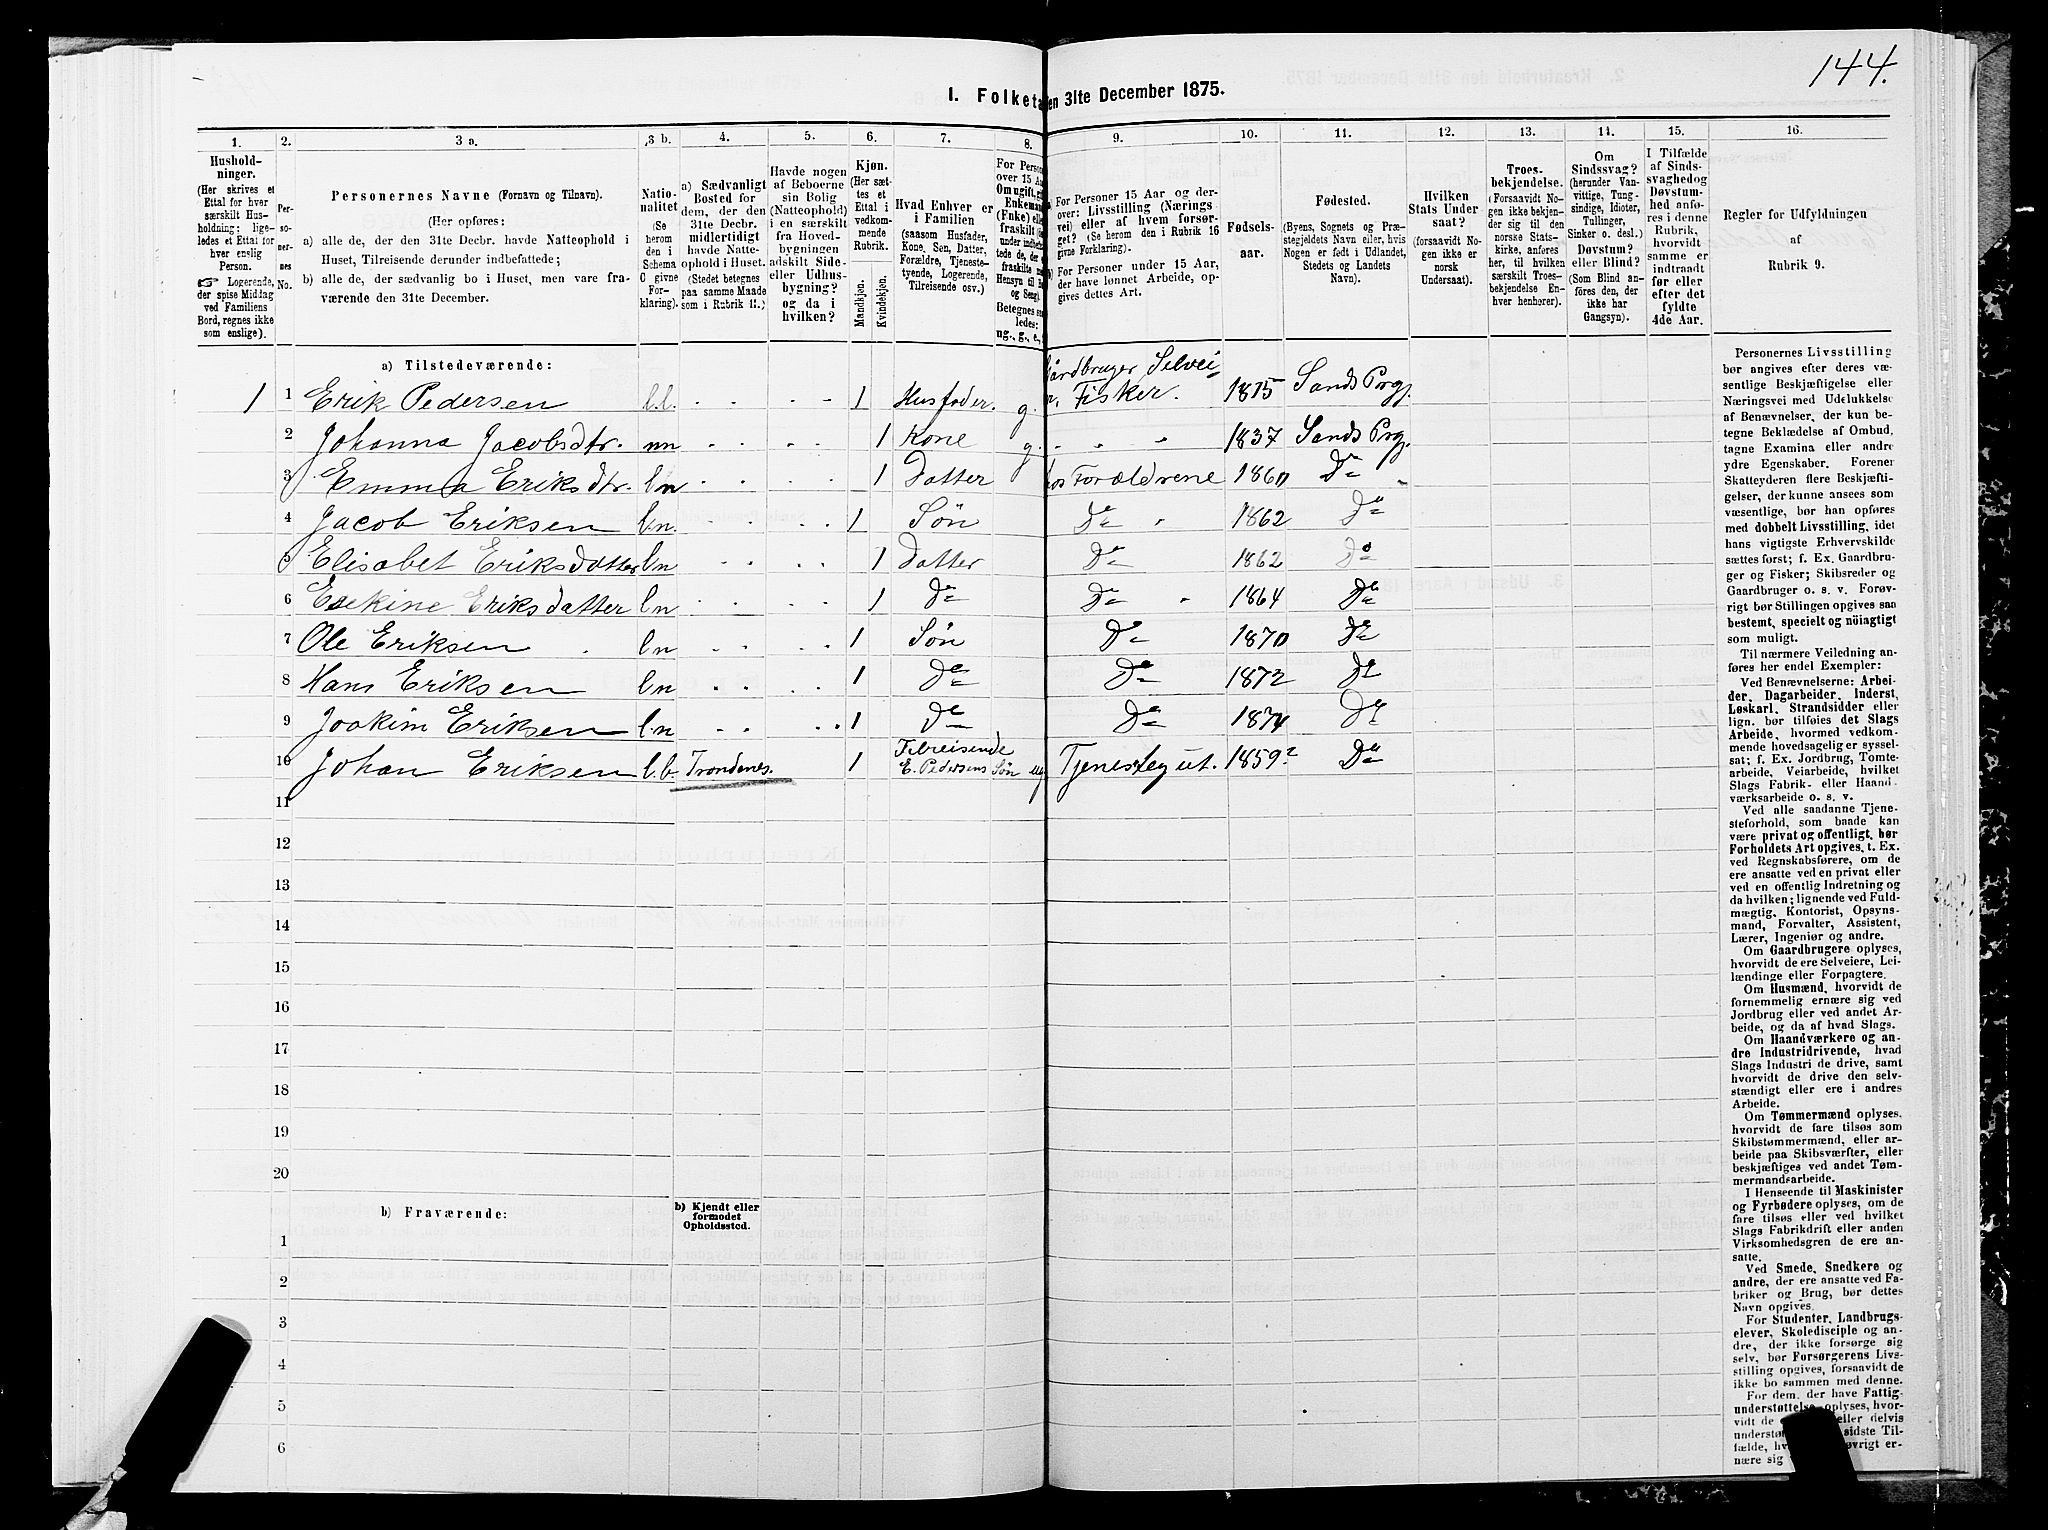 144.
I. Folketa
en 31te December 1875.
1. 2. 3 a. 3 b. 4. 5. 6. 7. 8. 9. 10. 11. 12. 13. 14. 15. 16.
Hushold-
ninger.
(Her skrives et
Ettal for hver
særskilt Hus-
holdning; lige-
ledes et Ettal for
hver enslig
Person.
☞ Logerende,
der spise Middag
ved Familiens
Bord, regnes ikke
som enslige).
Per-
so-
ner-
nes
No.
Personernes Navne (Fornavn og Tilnavn).
(Her opføres:
a) alle de, der den 31te Decbr. havde Natteophold i
Huset, Tilreisende derunder indbefattede;
b) alle de, der sædvanlig bo i Huset, men vare fra-
værende den 31te December.
Natio-
nalitet
(Se
herom
den i
Schema
C givne
For-
klaring).
a) Sædvanligt
Bosted for
dem, der den
31te Decbr.
midlertidigt
havde Natte-
ophold i Huset.
(Stedet betegnes
paa samme Maade
som i Rubrik 11.)
Havde nogen
af Beboerne
sin Bolig
(Natteophold)
i en særskilt
fra Hoved-
bygningen
adskilt Side-
eller Udhus-
bygning?
og da i
hvilken?
Kjøn.
(Her sæt-
tes et
Ettal i
vedkom-
mende
Rubrik.
Mandkjøn.
Kvindekjøn.
Hvad Enhver er
i Familien
(saasom Husfader,
Kone, Søn, Datter,
Forældre, Tjeneste-
tyende, Logerende,
Tilreisende osv.)
For Person
over 15 Aa
Om ugift, gif
Enkeman
(Fnke) elle
fraskilt
Betegnes saa
ledes:
ug., g., e.,
For Personer 15 Aar og der-
over: Livsstilling (Nærings-
vei) eller af hvem forsør-
get? (Se herom den i Rubrik 16
givne Forklaring).
For Personer under 15 Aar,
der have lønnet Arbeide, op-
gives dettes Art.
Fødsels-
aar.
Fødested.
(Byens, Sognets og Præ-
stegjeldets Navn eller, hvis
Nogen er født i Udlandet,
Stedets og Landets
Navn).
Hvilken
Stats Under
saat?
(forsaavidt No-
gen ikke er
norsk
Undersaat).
Troes-
bekjendelse.
(Forsaavidt No-
gen ikke bekjen-
der sig til den
norske Stats-
kirke, anføres
her, til hvilken
særskilt Troes-
bekjendelse En-
hver henhører).
Om
Sindssvag?
(herunder Van-
vittige, Tung-
sindige, Idioter,
Tullinger,
Sinker o. desl.)
Døvstum?
eller Blind?
(Som Blind an-
føres den, der
ikke har
Gangsyn).
I Tilfælde
af Sinds-
svaghed og
Døvstum-
hed anfø-
res i denne
Rubrik,
hvorvidt
samme er
indtraadt
før eller
efter det
fyldte
4de Aar.
Regler for Udfyldningen
af
Rubrik 9.
a) Tilstedeværende:
1 1 Erik Pedersen b.b. 1 Husfader. g. Gårdbruger Selvei- Fisker. 1815 Sands Prgj.
2 Johanna Jacobsdtr. nn 1 Kone g. 1837 Sands Prgj.
3 Emma Eriksdtr. bn 1 Datter hos Forældrene 1860 Do
4 Jacob Eriksen bn. 1 Søn Do 1862 Do
5 Elisabet Eriksdatter bn 1 Datter Do 1862 Do
6 Eriksdatter bn 1 Do Do 1864 Do
7 Ole Eriksen bn 1 Søn Do 1870 Do
8 Hans Eriksen bn 1 Do Do 1872 Do
9 Joakim Eriksen bn 1 Do Do 1874 Do
10 Johan Eriksen b.b. Trondenes. 1 Tilreisende E. Pedersens Søn ug Tjenestegut. 1859? Do
11
12
13
14
15
16
17
18
19
20
b) Fraværende:
b) Kjendt eller
formodet
Opholdssted.
1
2
3
4
5
6
Personernes Livsstilling
bør angives efter deres væ-
sentlige Beskjæftigelse eller
Næringsvei med Udelukkelse
af Benævnelser, der kun be-
tegne Beklædelse af Ombud,
tagne Examina eller andre
ydre Egenskaber. Forener
Skatteyderen flere Beskjæfti-
gelser, der kunne ansees som
væsentlige, bør han opføres
med dobbelt Livsstilling, idet
hans vigtigste Erhvervskilde
sættes først; f. Ex. Gaardbru-
ger og Fisker; Skibsreder og
Gaardbruger o. s. v. Forøv-
rigt bør Stillingen opgives saa
bestemt, specielt og nöiagtigt
som muligt.
Til nærmere Veiledning an-
føres her endel Exempler:
Ved Benævnelserne: Arbei-
der, Dagarbeider, Inderst,
Løskarl, Strandsidder eller
lign. bør tilføies det Slags
Arbeide, hvormed vedkom-
mende hovedsagelig er syssel-
sat; f. Ex. Jordbrug, Tomte-
arbeide, Veiarbeide, hvilket
Slags Fabrik- eller Haand-
værksarbeide o. s. v.
Ved alle saadanne Tjene-
steforhold, som baade kan
være privat og offentligt, bør
Forholdets Art opgives, t. Ex.
ved Regnskabsførere, om de
ere ansatte ved en privat eller
ved en offentlig Indretning og
da hvilken; lignende ved Fuld-
mægtig, Kontorist, Opsyns-
mand, Forvalter, Assistent,
Lærer, Ingeniør og andre.
Om Gaardbrugere oplyses,
hvorvidt de ere Selveiere, Lei-
lændinge eller Forpagtere.
Om Husmænd, hvorvidt de
fornemmelig ernære sig ved
Jordbrug eller ved andet Ar-
beide, og da af hvad Slags.
Om Haandværkere og an-
dre Industridrivende, hvad
Slags Industri de drive, samt
hvorvidt de drive den selv-
stændigt eller ere i andres
Arbeide.
Om Tømmermænd oplyses,
hvorvidt de fare tilsøs som
Skibstømmermænd, eller ar-
beide paa Skibsværfter, eller
beskjæftiges ved andet Tøm-
mermandsarbeide.
I Henseende til Maskinister
og Fyrbødere oplyses, om de
fare tilsøs eller ved hvilket
Slags Fabrikdrift eller anden
Virksomhedsgren de ere an-
satte.
Ved Smede, Snedkere og
andre, der ere ansatte ved Fa-
briker og Brug, bør dettes
Navn opgives.
For Studenter, Landbrugs-
elever, Skoledisciple og an-
dre, der ikke forsørge sig
selv, bør Forsørgerens Livs-
stilling opgives, forsaavidt de
ikke bo sammen med denne.
For dem, der have Fattig-
understøttelse oplyses, hvor-
vidt de eller delvis
underst sidste Til-
fælde, hv øvrigt er-
nære sig